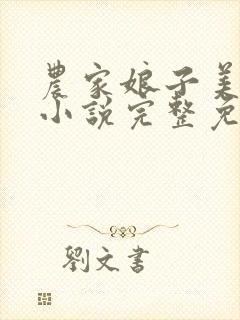 農家娘子美
小說完整免
劉文書